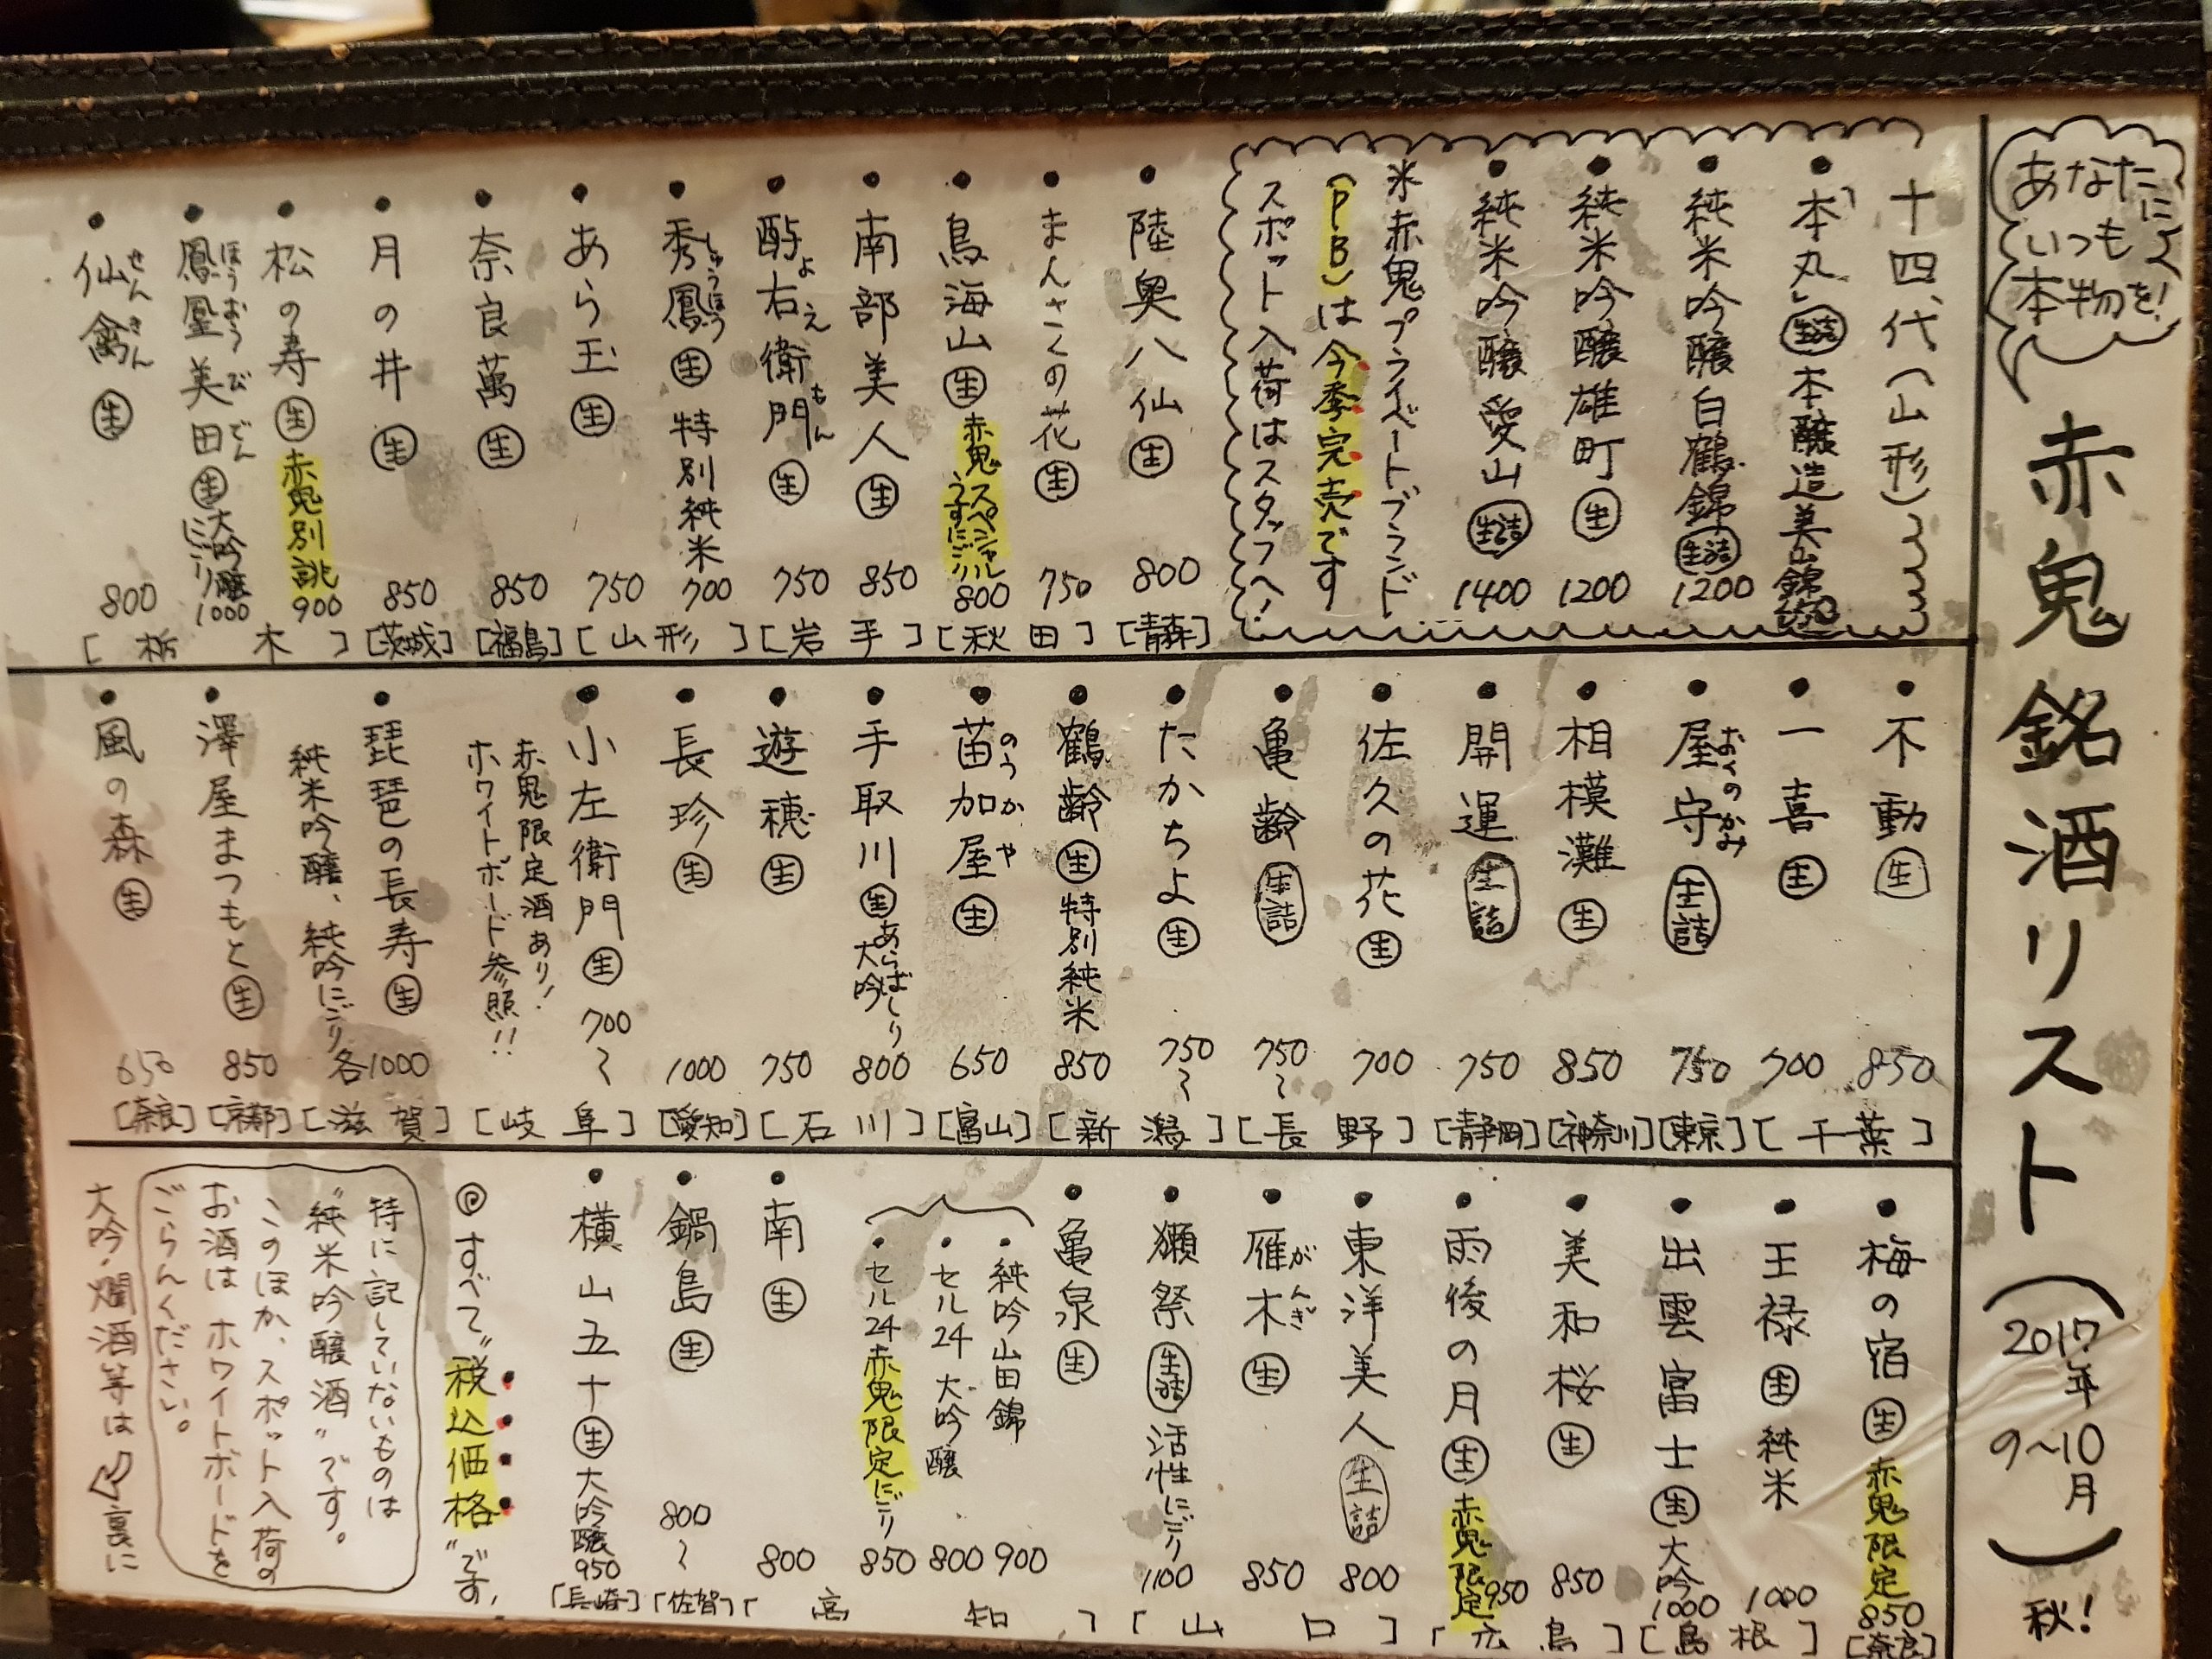 あなたに
いつも
本物を!
赤鬼銘酒リスト(2017年9~10月)秋!
十四代(山形)
・「本丸」生詰 本醸造美山錦
・純米吟醸白鶴錦 生詰 1200
・純米吟醸雄町 生 1200
・純米吟醸愛山 生詰 1400
※赤鬼プライベートブランド
(PB)は今季完売です
スポット入荷はスタッフへ!
・陸奥八仙 生 800
[青森]
・まんさくの花 生 750
・鳥海山 生 赤鬼スペシャルうすにごり 800
[秋田]
・南部美人 生 850
・酉与右衛門 よえもん 生 750
[岩手]
・秀鳳 しゅうほう 生 特別純米 700
・あら玉 生 750
[山形]
・奈良萬 生 850
[福島]
・月の井 生 850
[茨城]
・松の寿 生 赤鬼別誂 900
・鳳凰美田 ほうおうびでん 生 大吟醸にごり 1000
・仙禽 せんきん 生 800
[栃木]
・不動 生 850
・一喜 生 700
[千葉]
・屋守 おくのかみ 生詰 750
[東京]
・相模灘 生 850
[神奈川]
・開運 生詰 750
[静岡]
・佐久の花 生 700
・亀齢 生詰 750~
[長野]
・たかちよ 生 750~
・鶴齢 生 特別純米 850
[新潟]
・苗加屋 のうかや 生 650
[富山]
・手取川 生 あらばしり大吟 800
・遊穂 生 750
[石川]
・長珍 生 1000
[愛知]
・小左衛門 生 700~
赤鬼限定酒あり!
ホワイトボード参照!!
[岐阜]
・琵琶の長寿 生 各1000
純米吟醸、純吟にごり
[滋賀]
・澤屋まつもと 生 850
[京都]
・風の森 生 650
[奈良]
・梅の宿 生 赤鬼限定 850
[奈良]
・王禄 生 純米 1000
・出雲富士 生 大吟 1000
[島根]
・美和桜 生 850
・雨後の月 生 赤鬼限定 950
[広島]
・東洋美人 生詰 800
・雁木 がんぎ 生 850
・獺祭 生詰 活性にごり 1100
[山口]
・亀泉 生
・純吟山田錦 900
・セル24 大吟醸 800
・セル24 赤鬼限定にごり 850
・南 生 800
[高知]
・鍋島 生 800~
[佐賀]
・横山五十 生 大吟醸 950
[長崎]
◎すべて"税込価格"です。
特に記していないものは
"純米吟醸酒"です。
このほか、スポット入荷の
お酒はホワイトボードを
ごらんください。
大吟・燗酒等は裏に